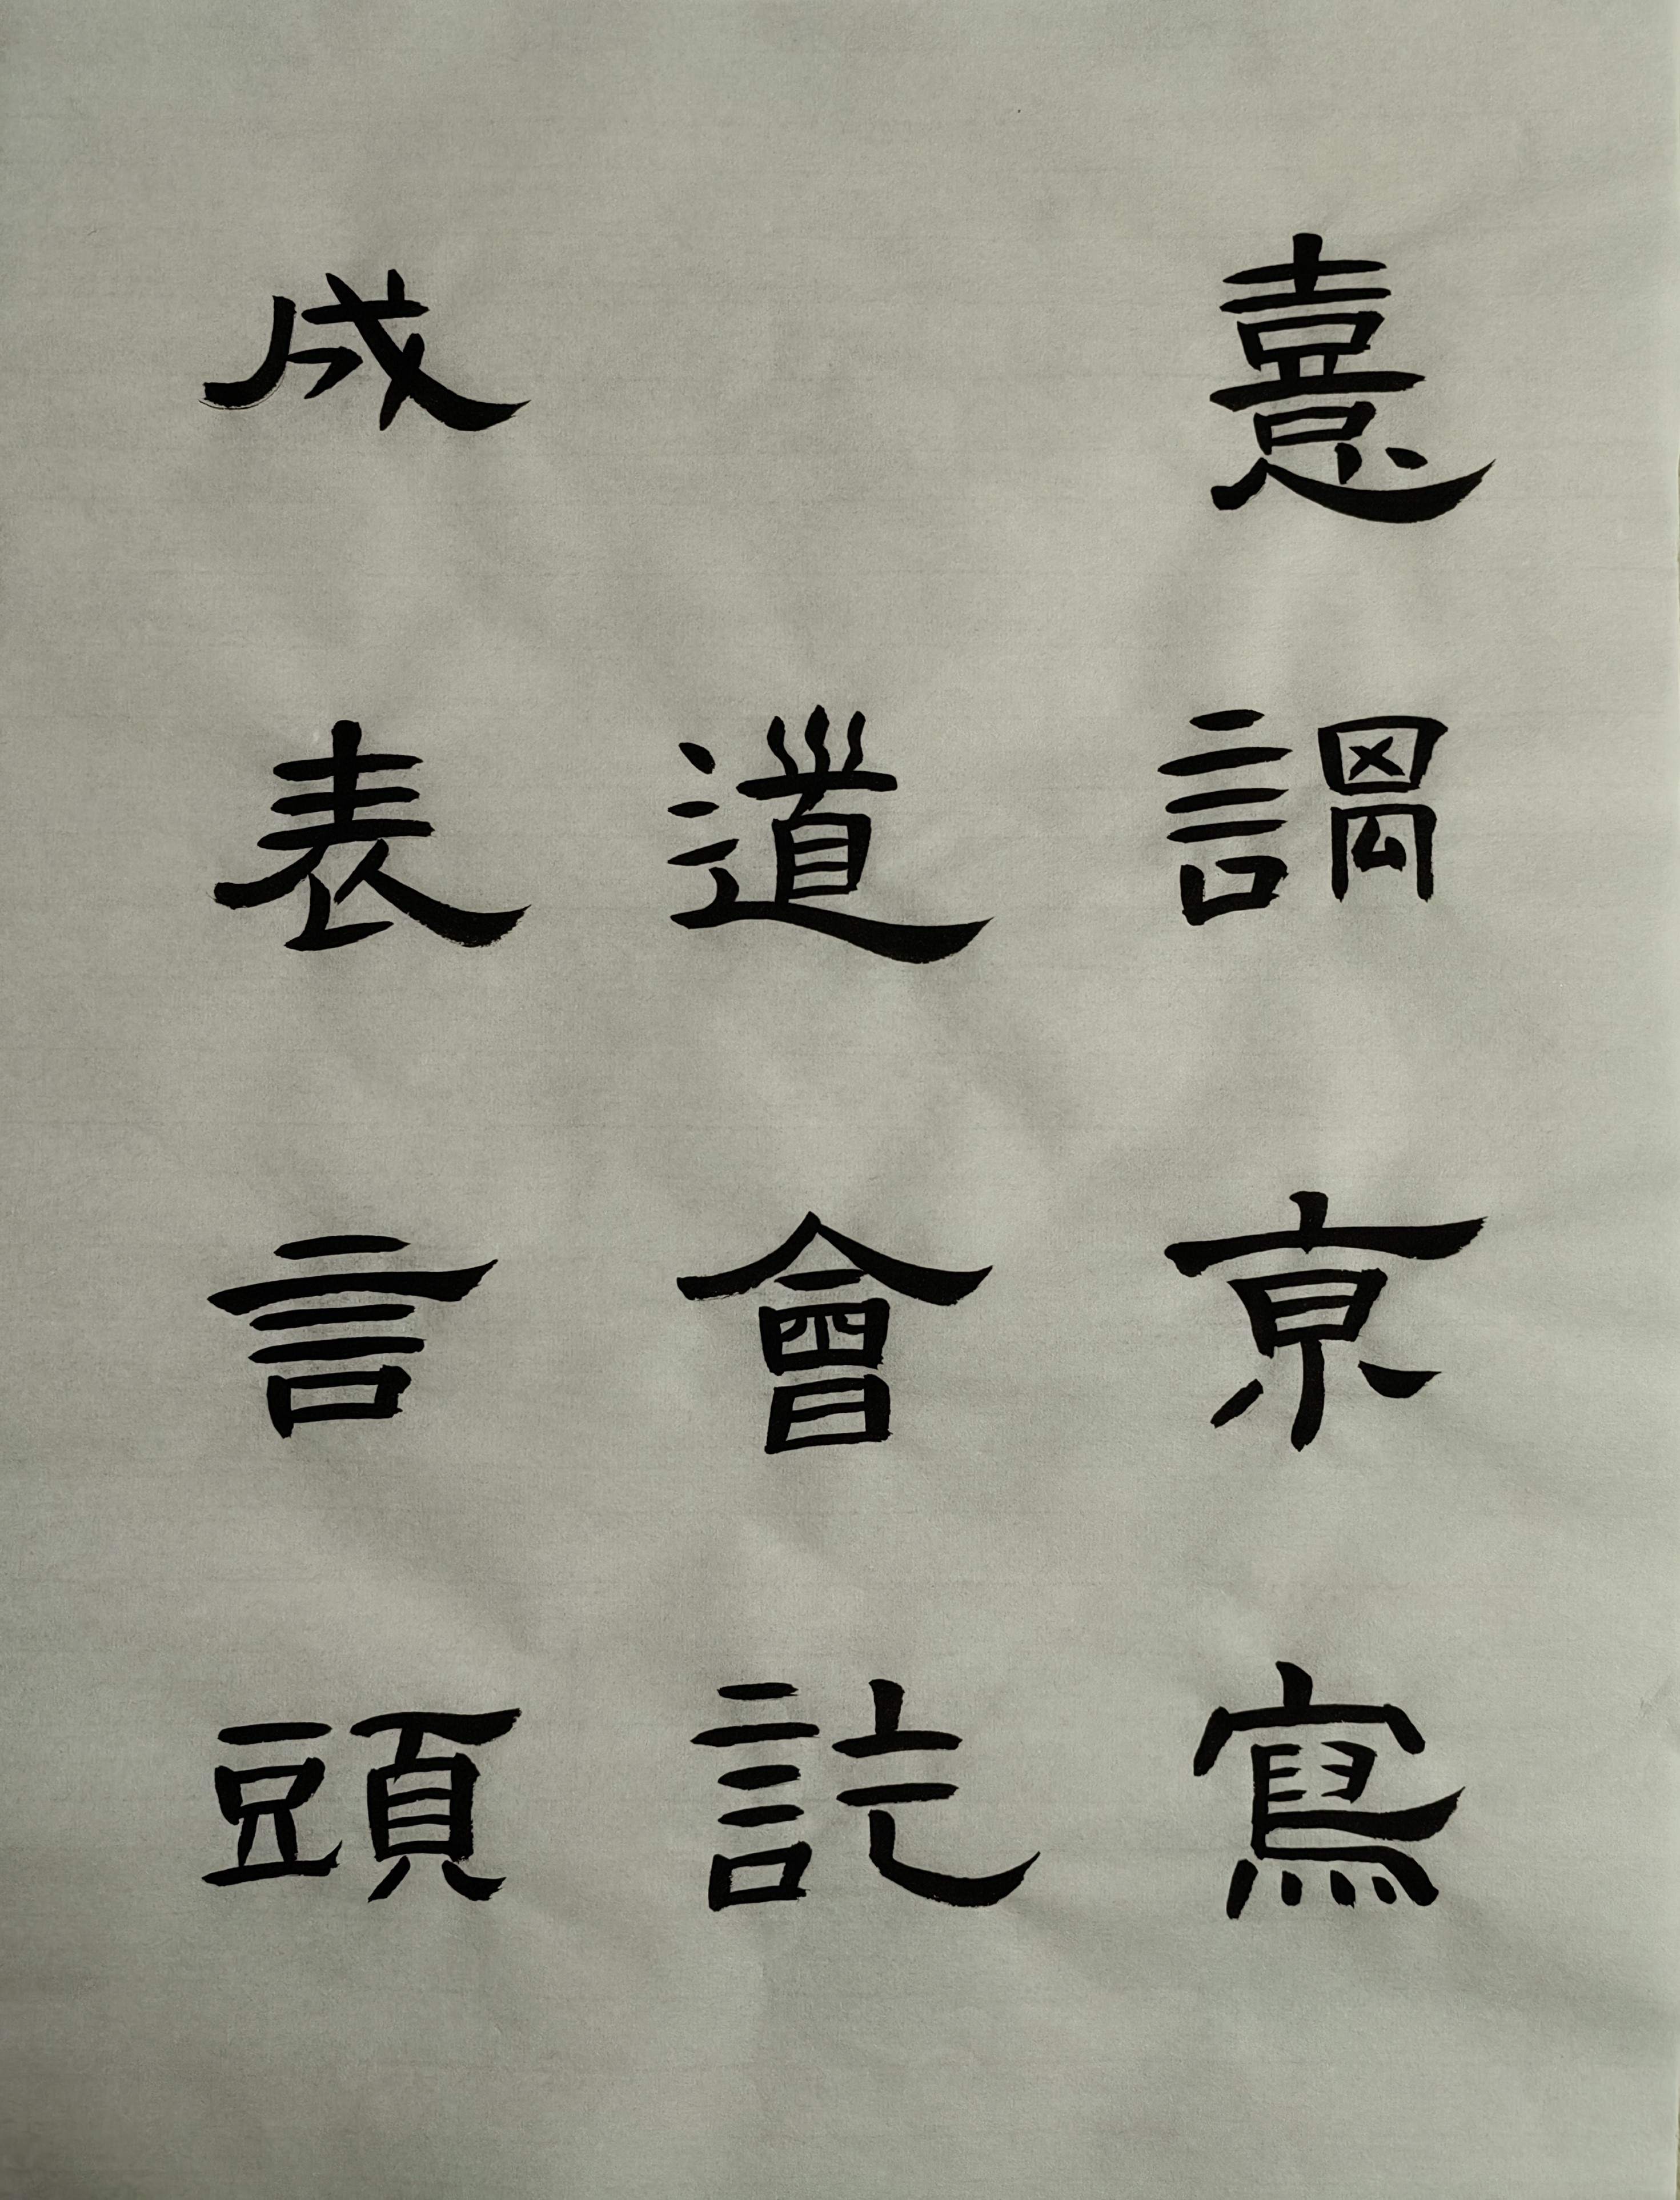 憙謂京寫
道會訖
成表言頭